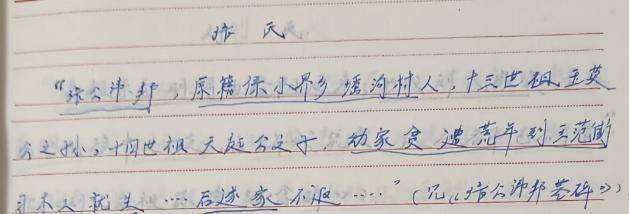 许 氏
“许公沛邦，原籍保小界乡塘沟村人，十三世祖玉英
公之孙，十四世祖天廷公之子 幼家贫 遭荒年 到三范街
习木工 就业 …… 后遂家不返 ……”（见《许公沛邦墓碑》）